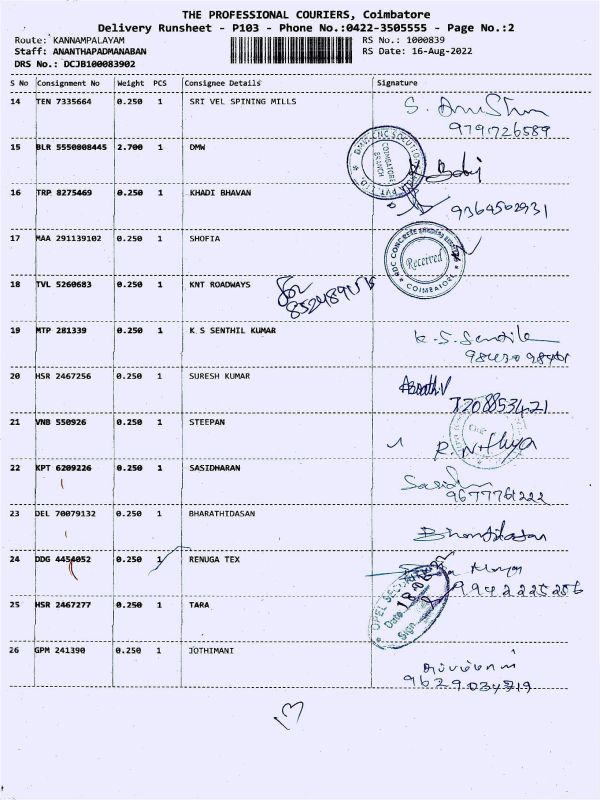 THE PROFESSIONAL COURIERS, Coimbatore
Delivery Runsheet - P103 - Phone No.:0422-3505555 - Page No.:2
Route: KANNAMPALAYAM RS No.: 1000839
Staff: ANANTHAPADMANABAN RS Date: 16-Aug-2022
DRS No.: DCJB100083902
S No Consignment No Weight PCS Consignee Details Signature
14 TEN 7335664 0.250 1 SRI VEL SPINING MILLS
9791726589
15 BLR 5550008445 2.700 1 DMW
COIMBATORE BRANCH
16 TRP 8275469 0.250 1 KHADI BHAVAN
9364502931
17 MAA 291139102 0.250 1 SHOFIA
Received
COIMBATORE
18 TVL 5260683 0.250 1 KNT ROADWAYS
19 MTP 281339 0.250 1 K.S SENTHIL KUMAR
20 HSR 2467256 0.250 1 SURESH KUMAR
7208853421
21 VNB 550926 0.250 1 STEEPAN
R. Nithya
22 KPT 6209226 0.250 1 SASIDHARAN
9677761222
23 DEL 70079132 0.250 1 BHARATHIDASAN
24 DDG 4454052 0.250 1 RENUGA TEX
9942225256
25 HSR 2467277 0.250 1 TARA
Date
Sign
26 GPM 241390 0.250 1 JOTHIMANI
13